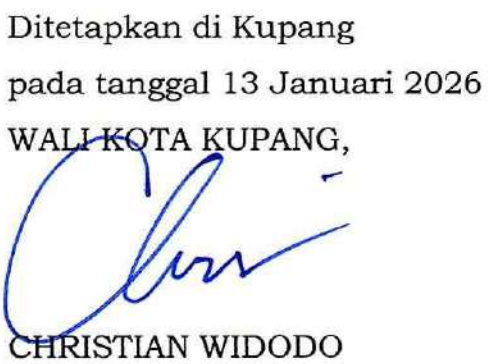 Ditetapkan di Kupang
pada tanggal 13 Januari 2026
WALI KOTA KUPANG,
CHRISTIAN WIDODO